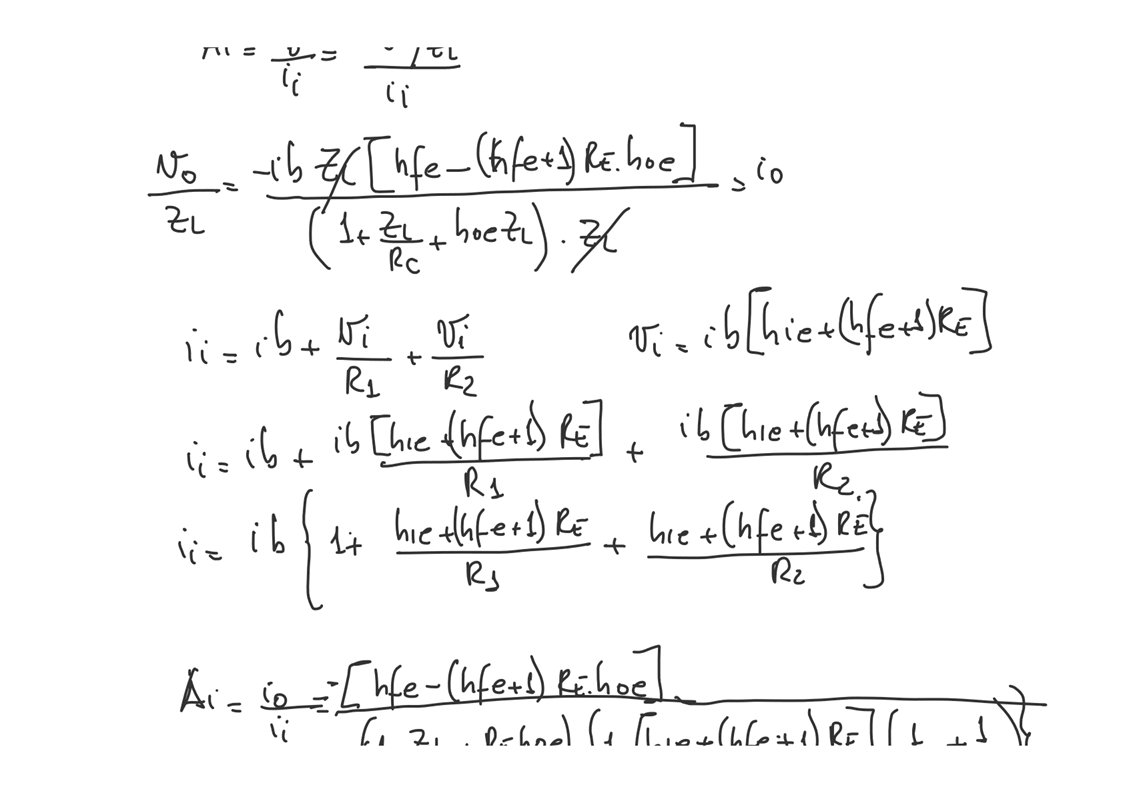 Ai = o/ii = o/ZL/ii
No/ZL = -ib ZL[hfe-(hfe+1) RE.hoe]/(1+ZL/RC + hoe ZL) . ZL = io
ii = ib + Ni/R1 + Vi/R2    Vi = ib[hie+(hfe+1)RE]
ii = ib + ib[hie+(hfe+1) RE]/R1 + ib[hie+(hfe+1) RE]/R2
ii = ib {1+ hie+(hfe+1) RE/R1 + hie+(hfe+1) RE/R2}
Ai = io/ii = -[hfe-(hfe+1) RE.hoe]/(1 ZL RE hoe) (1 [hie+(hfe+1) RE] (1 +1))